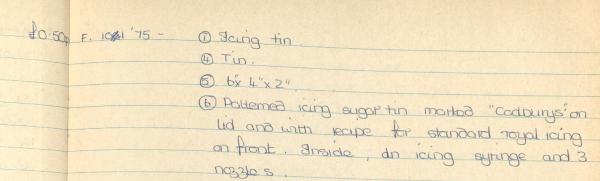 £0.50p F. 1041 '75 - ① Icing tin
④ Tin.
⑤ 6" x 4" x 2"
⑥ Patterned icing sugar tin marked "Cadburys" on
lid and with recipe for standard royal icing
on front. Inside, an icing syringe and 3
nozzles.